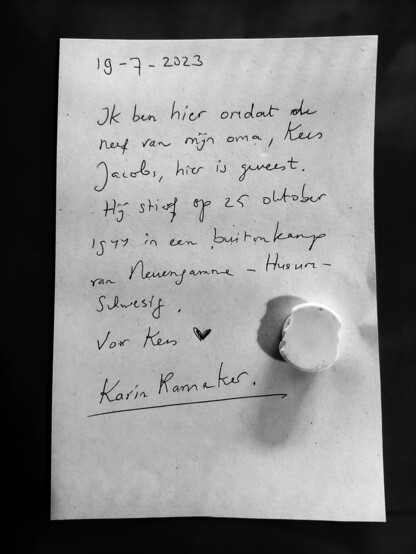 19-7-2023
Ik ben hier omdat de
neef van mijn oma, Kees
Jacobs, hier is geweest.
Hij stierf op 25 oktober
1944 in een buitenkamp
van Neuengamme - Husum -
Schwesig.
Voor Kees ♥
Karin Ramaker.